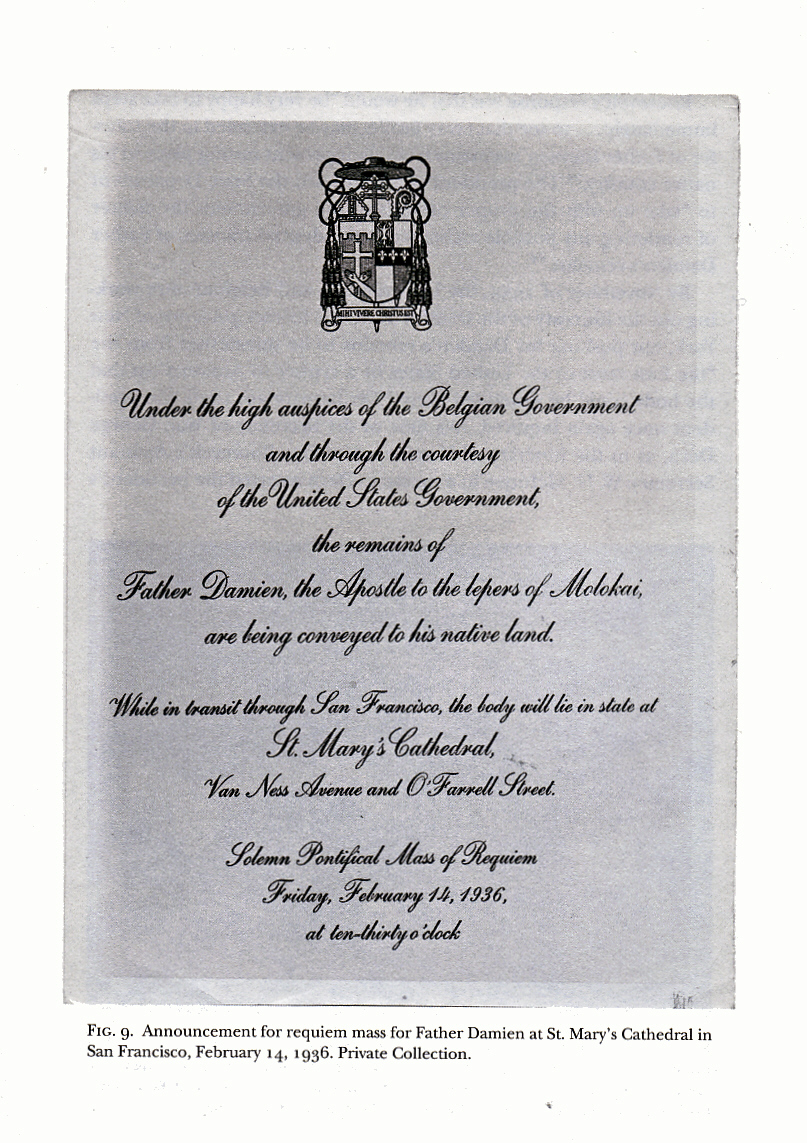 MIHI VIVERE CHRISTUS EST
Under the high auspices of the Belgian Government
and through the courtesy
of the United States Government,
the remains of
Father Damien, the Apostle to the lepers of Molokai,
are being conveyed to his native land.
While in transit through San Francisco, the body will lie in state at
St. Mary's Cathedral,
Van Ness Avenue and O'Farrell Street.
Solemn Pontifical Mass of Requiem
Friday, February 14, 1936,
at ten-thirty o'clock
FIG. 9. Announcement for requiem mass for Father Damien at St. Mary's Cathedral in
San Francisco, February 14, 1936. Private Collection.